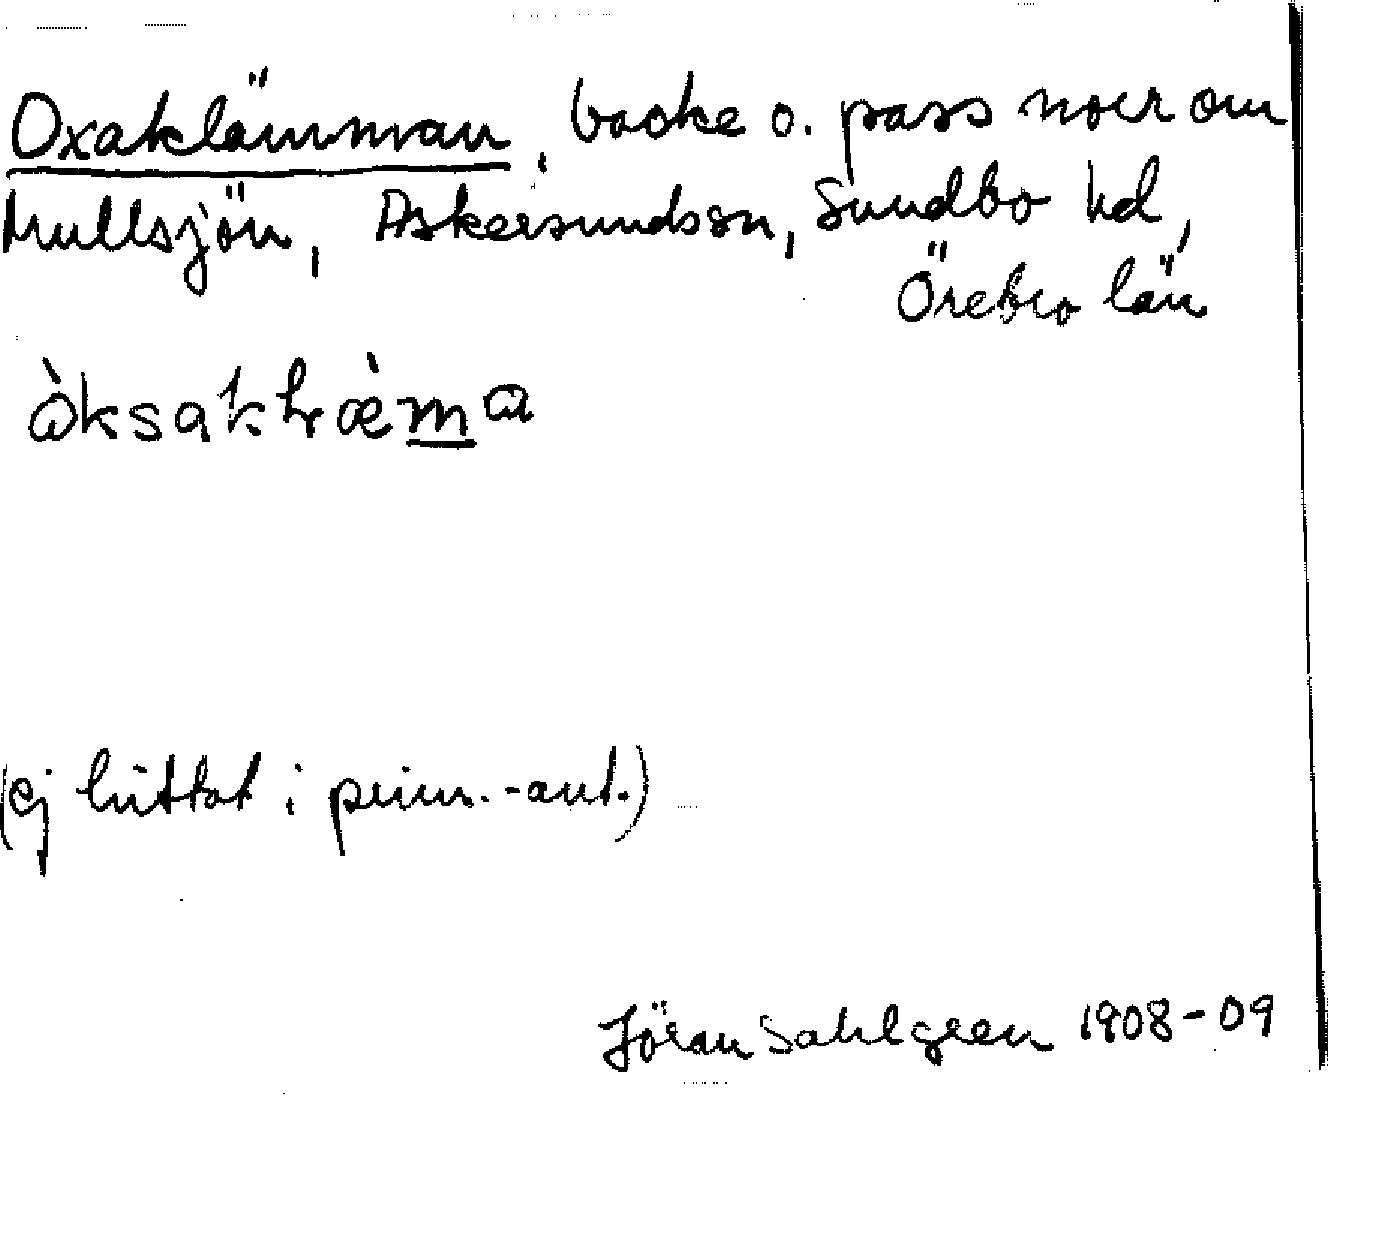 Oxaklämman, backe o. pass norr om
Mullsjön, Askersundssn, Sundbo hd,
Örebro län
(ej hittat i prim.-ant.)
Jöran Sahlgren 1908-09